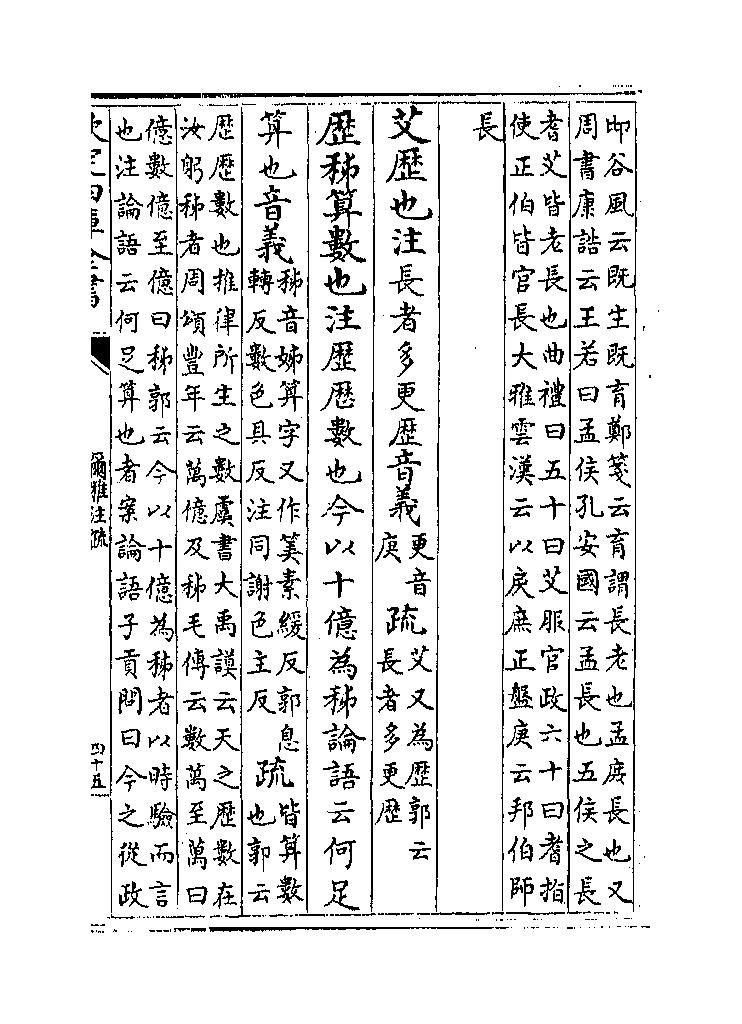 邶谷風云既生既育鄭箋云育謂長老也孟庶長也又
周書康誥云王若曰孟侯孔安國云孟長也五侯之長
耆艾皆老長也曲禮曰五十曰艾服官政六十曰耆指
使正伯皆官長大雅雲漢云以戾庶正盤庚云邦伯師
長
艾歴也注長者多更歴音義更音庚疏艾又為歴郭云長者多更歴
歴秭算數也注歴歴數也今以十億為秭論語云何足
算也音義秭音姊算字又作筭素緩反郭息轉反數色具反注同謝色主反疏皆算數也郭云
歴歴數也推律所生之數虞書大禹謨云天之歴數在
汝躬秭者周頌豐年云萬億及秭毛傳云數萬至萬曰
億數億至億曰秭郭云今以十億為秭者以時驗而言
也注論語云何足算也者案論語子貢問曰今之從政
欽定四庫全書
爾雅注疏
四十五